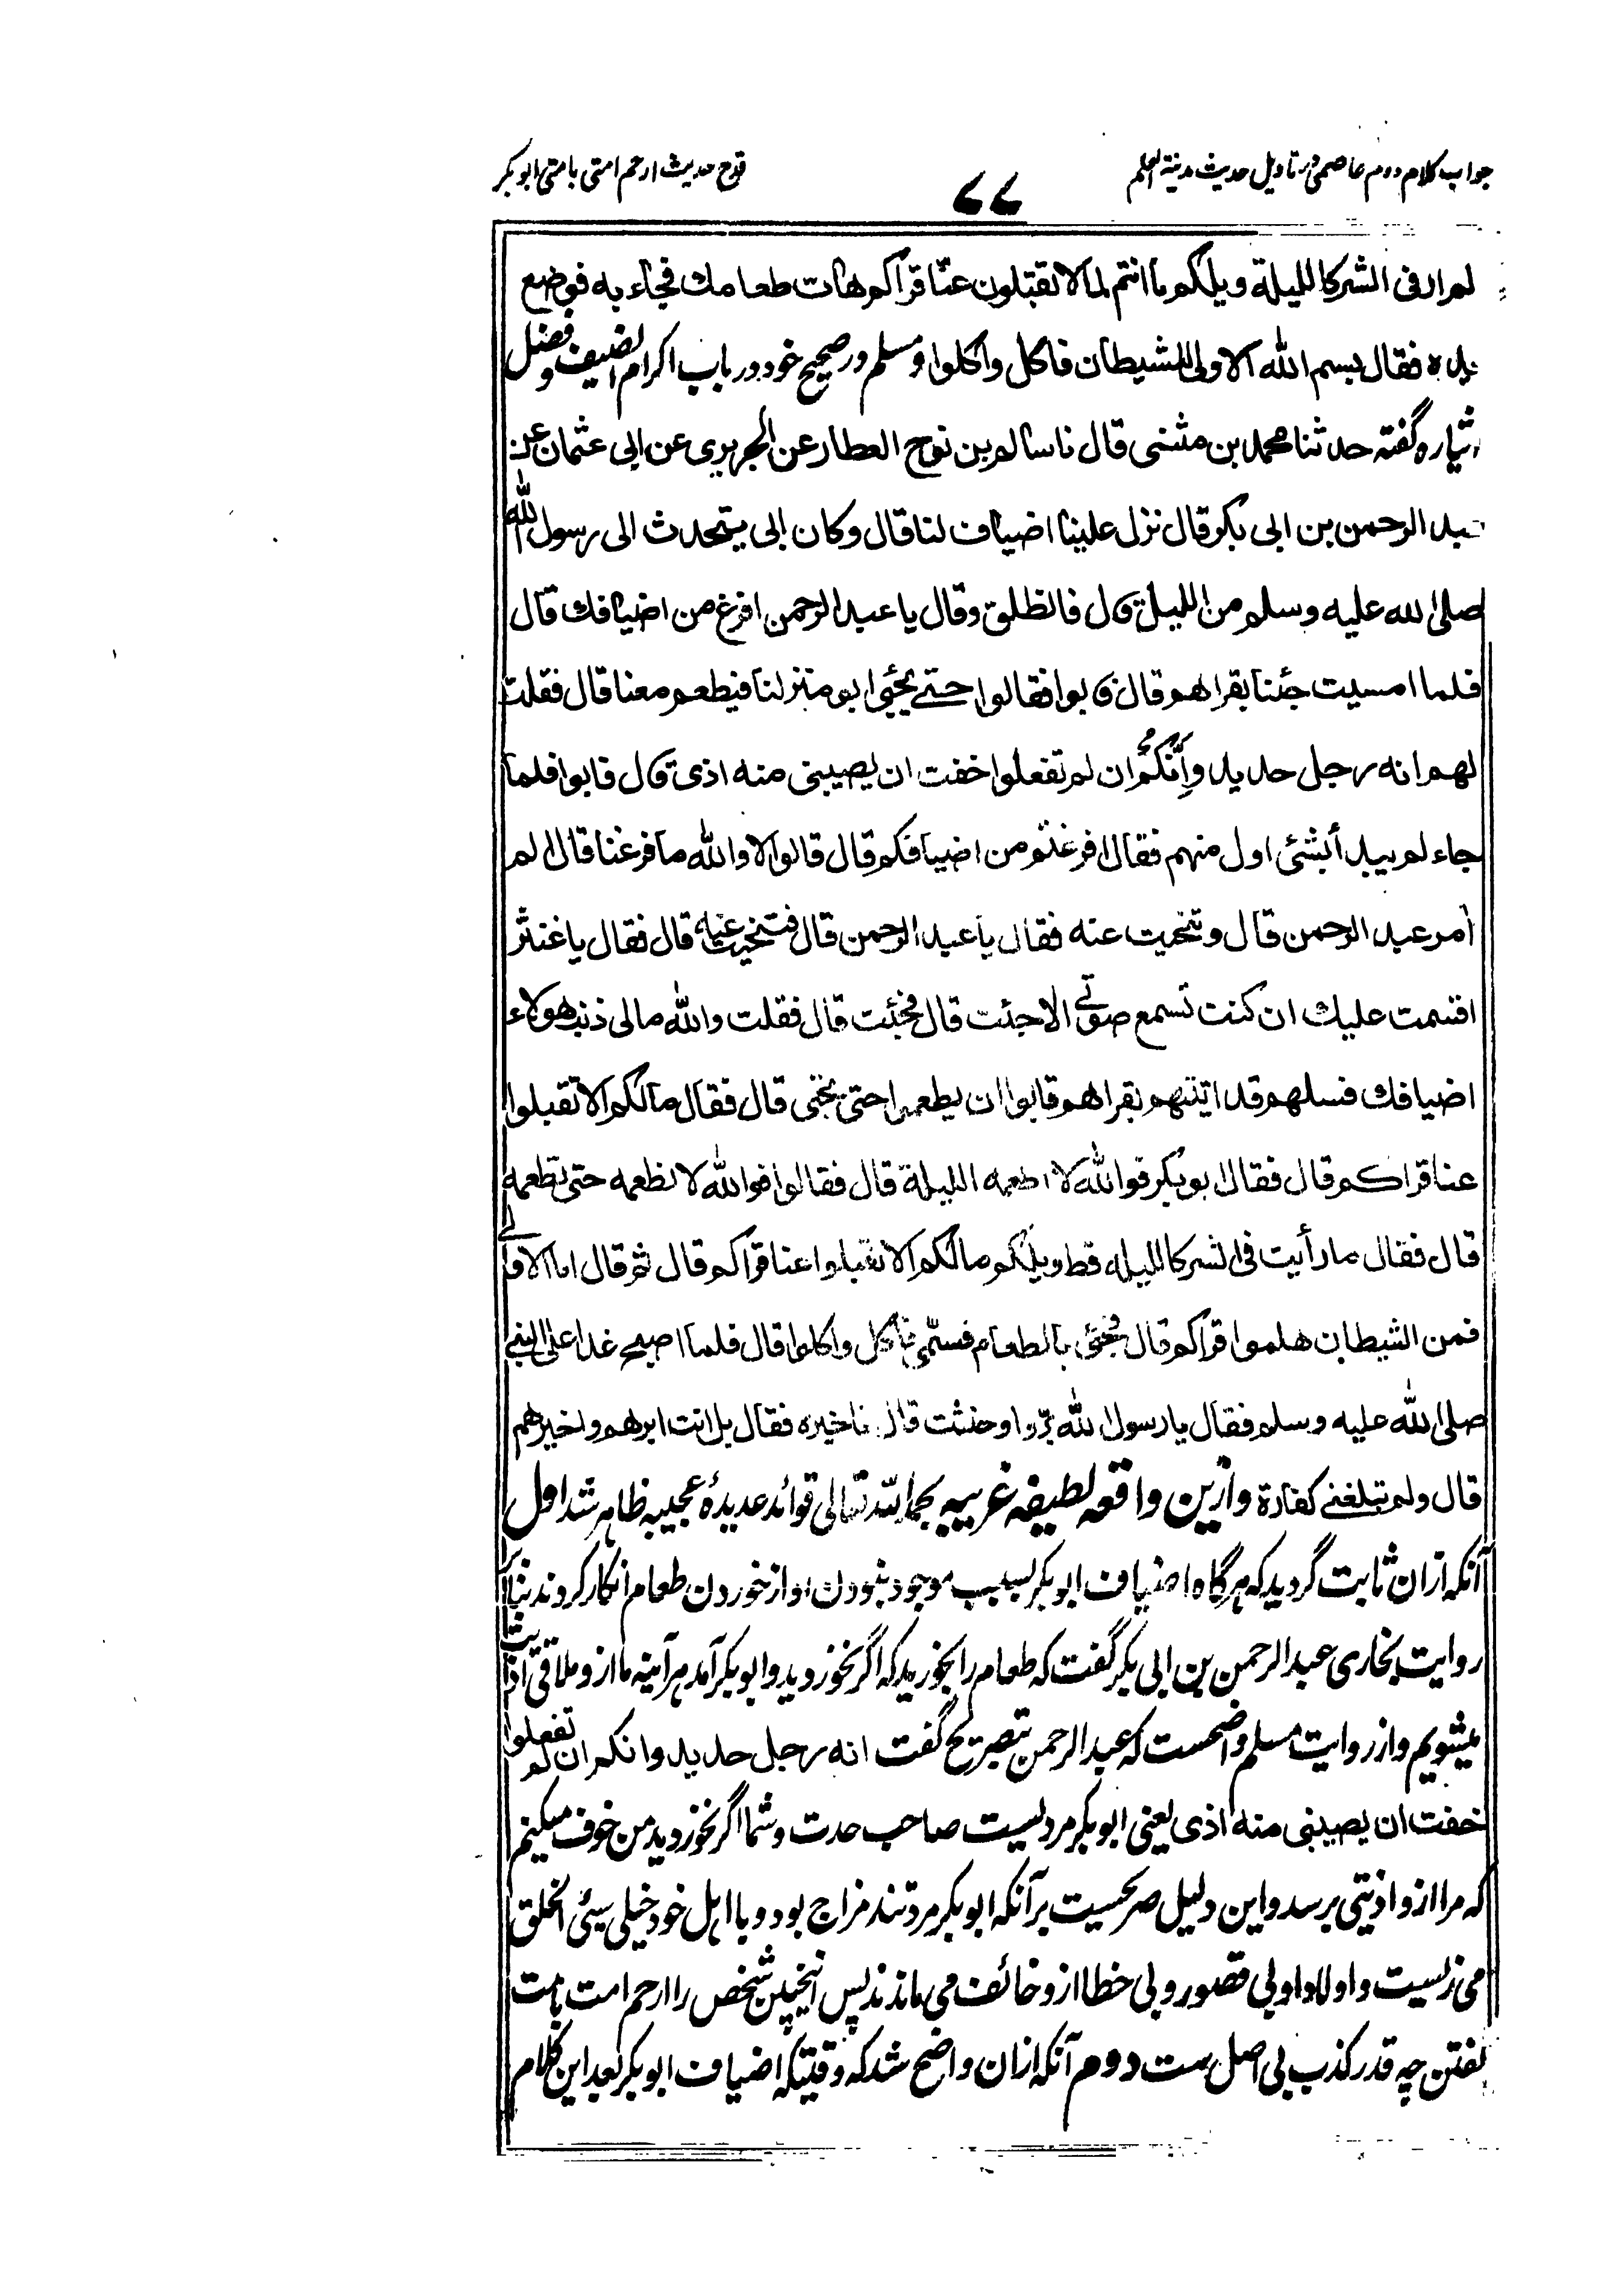 جواب کلام دوم عاصمی در تاویل حدیث مدینة العلم
۷۷
قدح حدیث ارحم امتی بامتی ابوبکر
لم ار فی الشر کاللیلة ویلکم ما انتم لما لا تقبلون عنّا قراکم هات طعامك فجاء به فوضع
یده فقال بسم الله الاولی للشیطان فاکل واکلوا و مسلم در صحیح خود در باب اکرام الضیف و فضل
ایثاره گفته حدثنا محمد بن مثنی قال نا سالم بن نوح العطار عن الجریری عن ابی عثمان عن
عبد الرحمن بن ابی بکر قال نزل علینا اضیاف لنا قال وکان ابی یتحدث الی رسول الله
صلی الله علیه وسلم من اللیل قال فانطلق وقال یا عبد الرحمن افرغ من اضیافك قال
فلما امسیت جئنا بقراهم قال فابوا فقالوا حتی یجیئ ابو منزلنا فیطعم معنا قال فقلت
لهم انه رجل حدید وانّکم ان لم تفعلوا خفت ان یصیبنی منه اذی قال فابوا فلما
جاء لم یبدأ بشئ اول منهم فقال افرغتم من اضیافکم قال قالوا لا والله ما فرغنا قال الم
آمر عبد الرحمن قال وتنحیت عنه فقال یا عبد الرحمن قال فتنحیت عنه قال فقال یا غنثر
اقسمت علیك ان کنت تسمع صوتی الا جئت قال فجئت قال فقلت والله مالی ذنب هولاء
اضیافك فسلهم قد اتیتهم بقراهم فابوا ان یطعموا حتی تجئی قال فقال مالکم الا تقبلوا
عنا قراکم قال فقال ابوبکر فوالله لا اطعمه اللیلة قال فقالوا فوالله لا نطعمه حتی تطعمه
قال فقال ما رأیت فی الشر کاللیلة قط ویلکم مالکم الا تقبلوا عنا قراکم قال ثم قال اما الاولی
فمن الشیطان هلموا قراکم قال فجئ بالطعام فسمّی فاکل واکلوا قال فلما اصبح غدا علی النبی
صلی الله علیه وسلم فقال یا رسول الله برّوا وحنثت قال فاخبره فقال بل انت ابرهم واخیرهم
قال ولم تبلغنی کفارة وازین واقعه لطیفه غریبه بحمد الله تعالی فوائد عدیدهٔ عجیبه ظاهر شد اول
آنکه ازان ثابت گردید که هرگاه اضیاف ابوبکر بسبب موجود نبودن او از خوردن طعام انکار کردند بنابر
روایت بخاری عبد الرحمن بن ابی بکر گفت که طعام را بخورید که اگر نخوردید و ابوبکر آمد هر آئینه ما ازو ملاقی اذیت
میشویم و از روایت مسلم واضحست که عبد الرحمن بتصریح گفت انه رجل حدید وانکم ان لم تفعلوا
خفت ان یصیبنی منه اذی یعنی ابوبکر مردیست صاحب حدت و شما اگر نخوردید من خوف میکنم
که مرا ازو اذیتی برسد و این دلیل صریحیست بر آنکه ابوبکر مرد تند مزاج بود و با اهل خود خیلی سیئ الخلق
می زیست و اولاد او بی قصور و بی خطا ازو خائف می ماندند پس اینچنین شخص را ارحم امت بامت
گفتن چه قدر کذب بی اصل ست دوم آنکه ازان واضح شد که وقتیکه اضیاف ابوبکر بعد این کلام